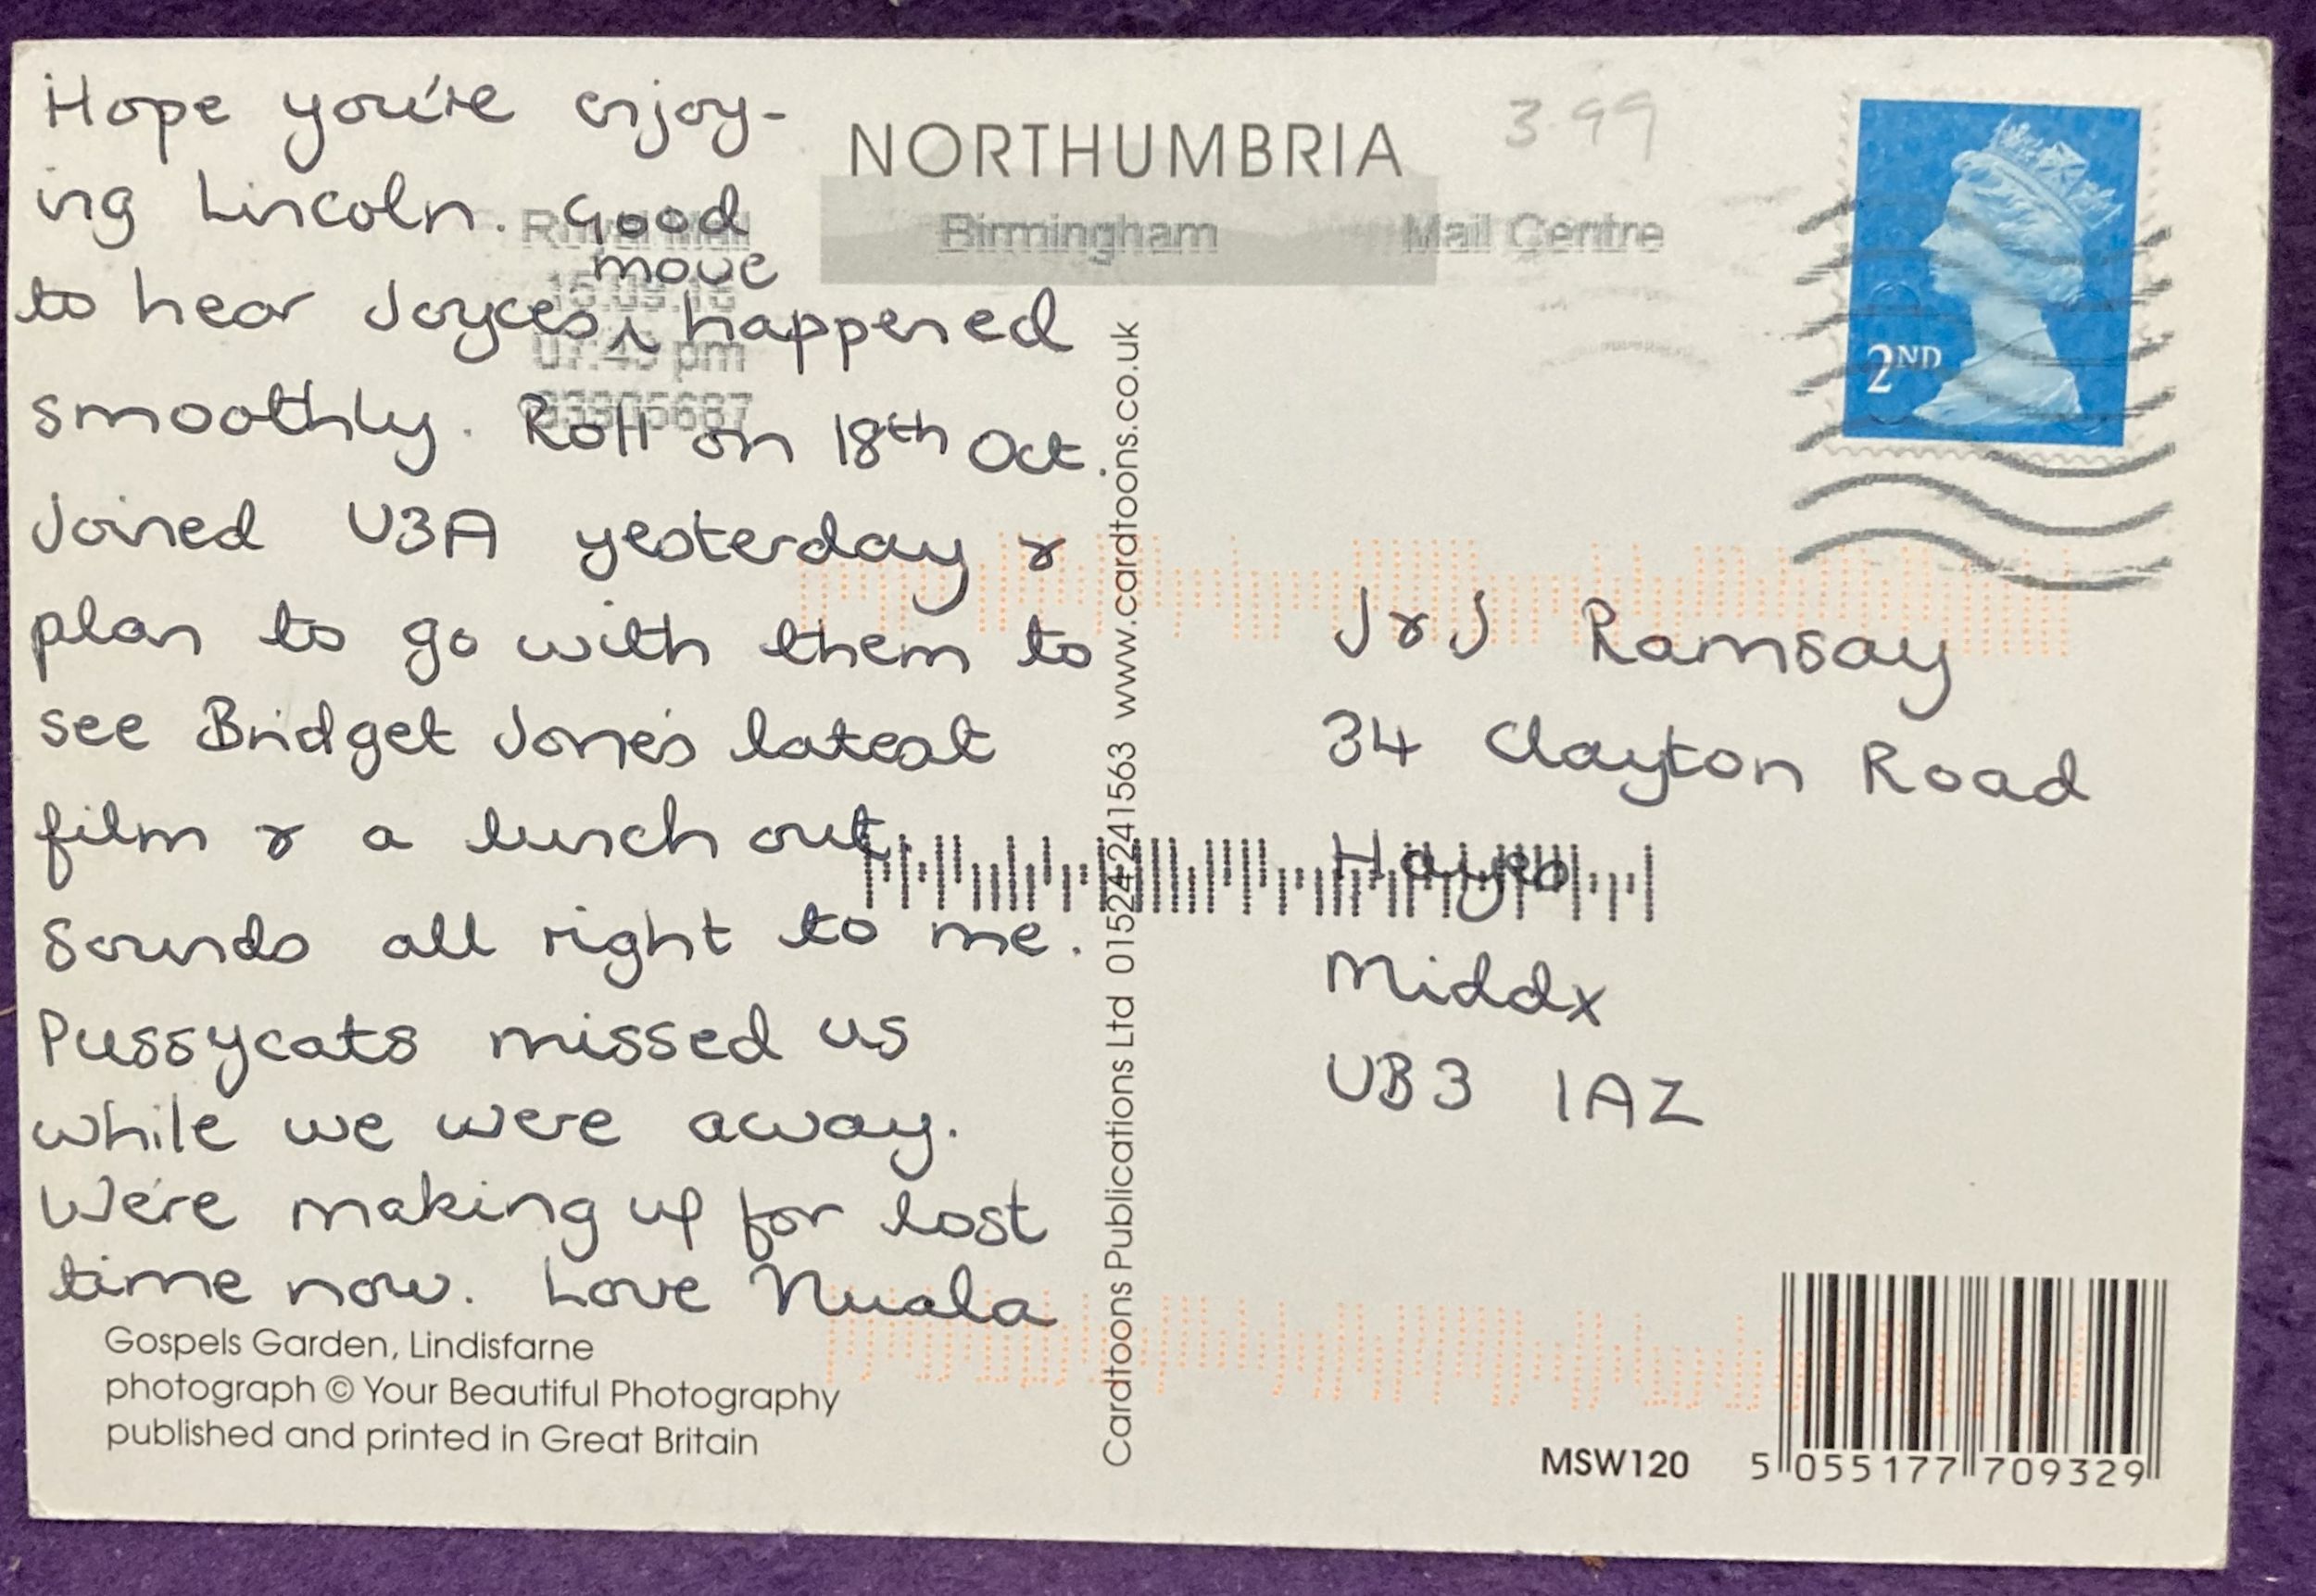 Hope you're enjoy-
ing Lincoln. Good
move
to hear Joyce's ⁁ happened
smoothly. Roll on 18th Oct.
Joined U3A yesterday &
plan to go with them to
see Bridget Jone's latest
film & a lunch out.
Sounds all right to me.
Pussycats missed us
while we were away.
We're making up for lost
time now. Love Nuala
Gospels Garden, Lindisfarne
photograph © Your Beautiful Photography
published and printed in Great Britain
NORTHUMBRIA
3.99
Royal Mail Birmingham Mail Centre
07:45 pm
2ND
Cardtoons Publications Ltd 01524 241563 www.cardtoons.co.uk
J & J Ramsay
34 Clayton Road
Hayes
Middx
UB3 1AZ
MSW120
5 055177 709329